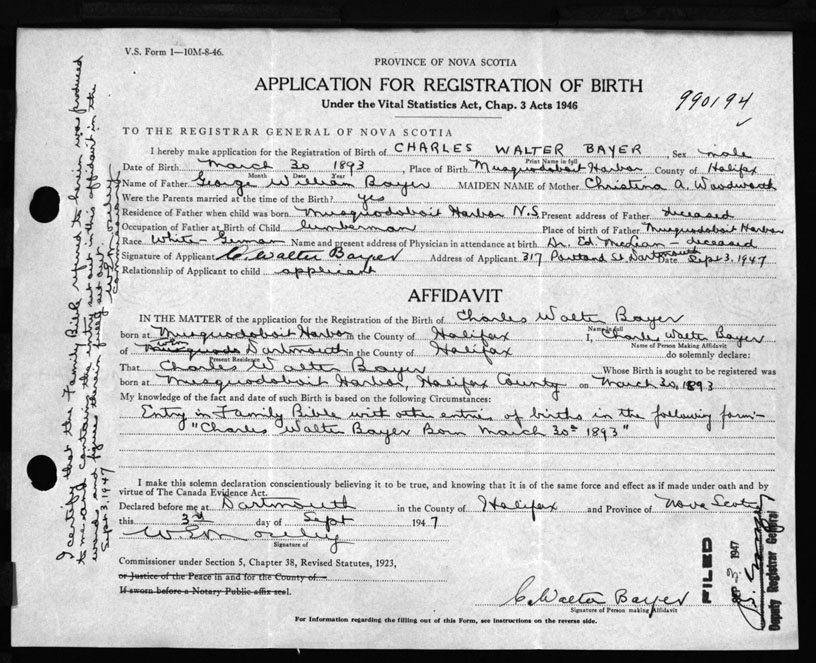 V.S. Form 1—10M-8-46.
PROVINCE OF NOVA SCOTIA
APPLICATION FOR REGISTRATION OF BIRTH
Under the Vital Statistics Act, Chap. 3 Acts 1946
990194
TO THE REGISTRAR GENERAL OF NOVA SCOTIA
I hereby make application for the Registration of Birth of CHARLES WALTER BAYER, Sex male
Print Name in full
Date of Birth March 30 1893, Place of Birth Musquodoboit Harbor County of Halifax
Month Date Year
Name of Father George William Bayer MAIDEN NAME of Mother Christina A. Woodworth
Were the Parents married at the time of the Birth? yes
Residence of Father when child was born Musquodoboit Harbor N.S. Present address of Father deceased
Occupation of Father at Birth of Child lumberman Place of birth of Father Musquodoboit Harbor
Race White - German Name and present address of Physician in attendance at birth Dr. Ed. McLean - deceased
Signature of Applicant C. Walter Bayer Address of Applicant 317 Portland St. Dartmouth Date Sept 3, 1947
Relationship of Applicant to child applicant
AFFIDAVIT
IN THE MATTER of the application for the Registration of the Birth of Charles Walter Bayer
Name in full
born at Musquodoboit Harbor in the County of Halifax I, Charles Walter Bayer
Name of Person Making Affidavit
of Dartmouth in the County of Halifax do solemnly declare:
Present Residence
That Charles Walter Bayer Whose Birth is sought to be registered was
born at Musquodoboit Harbor, Halifax County on March 30, 1893
My knowledge of the fact and date of such Birth is based on the following Circumstances:
Entry in Family Bible with other entries of births in the following form:-
"Charles Walter Bayer Born March 30th 1893"
I make this solemn declaration conscientiously believing it to be true, and knowing that it is of the same force and effect as if made under oath and by
virtue of The Canada Evidence Act.
Declared before me at Dartmouth in the County of Halifax and Province of Nova Scotia
this 3rd day of Sept 1947
Signature of
Commissioner under Section 5, Chapter 38, Revised Statutes, 1923,
or Justice of the Peace in and for the County of
If sworn before a Notary Public affix seal.
C. Walter Bayer
Signature of Person making Affidavit
For Information regarding the filling out of this Form, see instructions on the reverse side.
I certify that the Family Bible referred to herein was produced
to me and containing the entry set out in this affidavit in the
words and figures therein fully set out
Sept 3, 1947
FILED
SEP 3. 1947
Deputy Registrar General